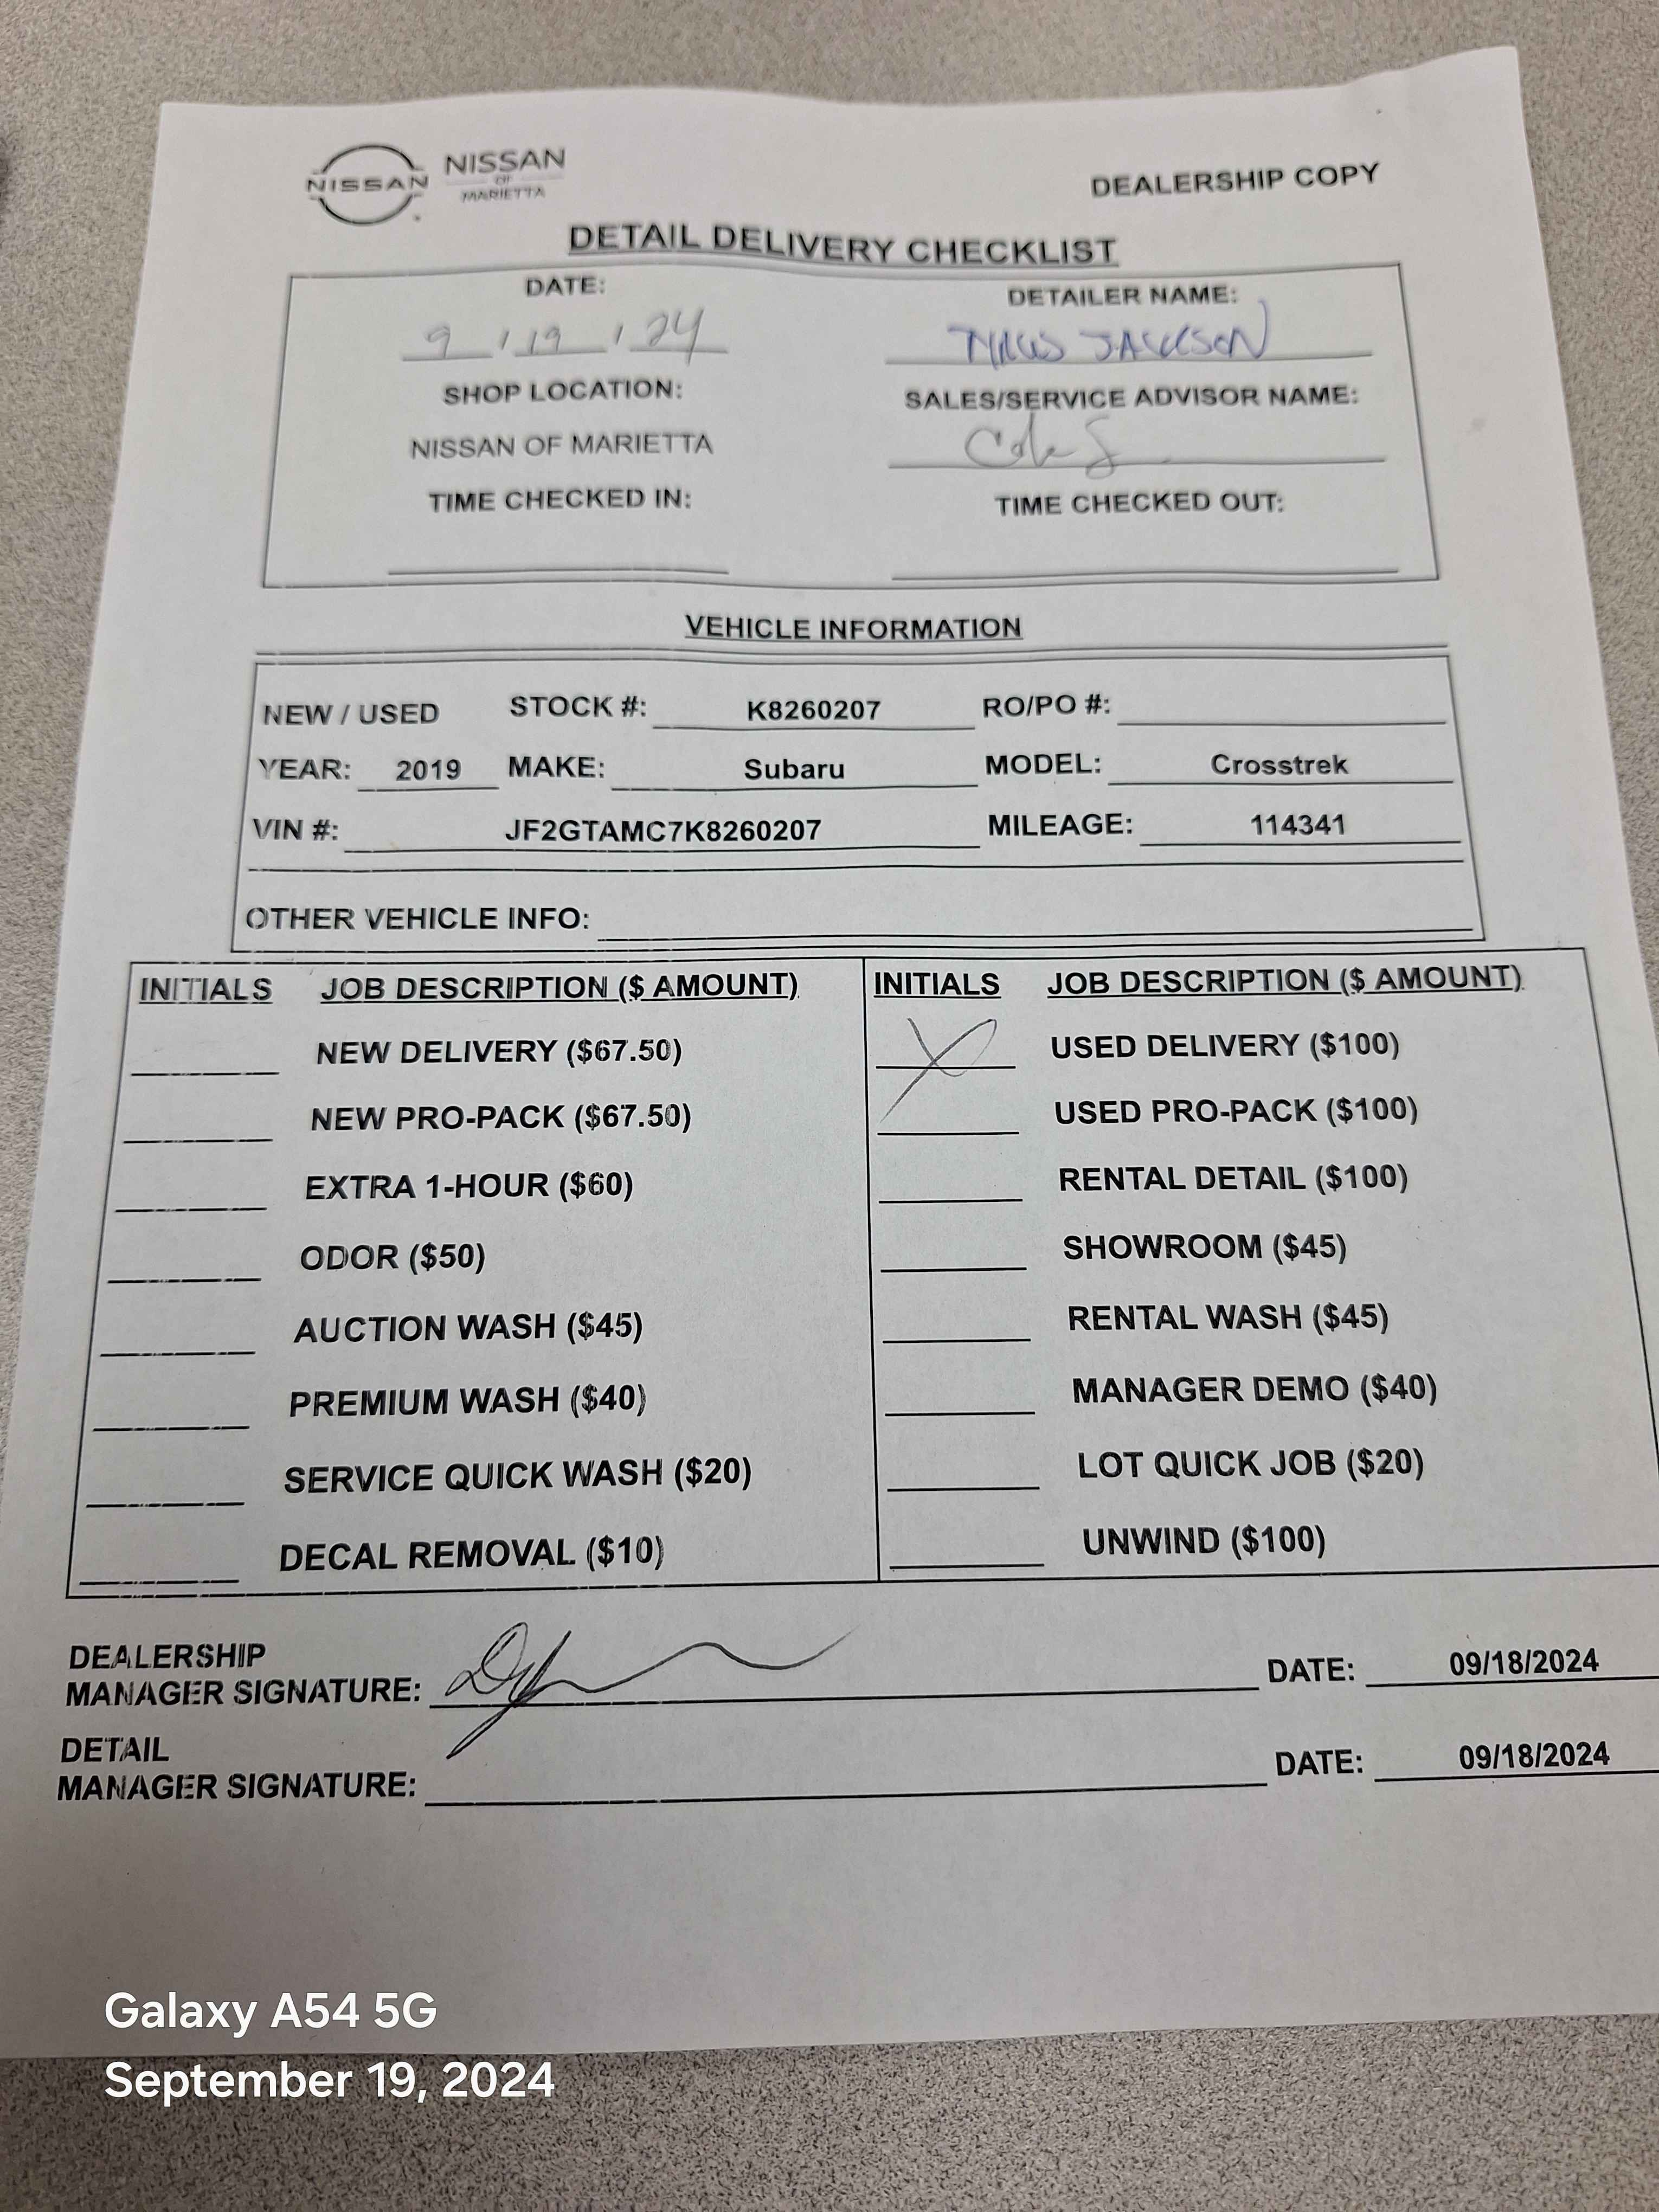 NISSAN NISSAN OF MARIETTA
DEALERSHIP COPY
DETAIL DELIVERY CHECKLIST
DATE: DETAILER NAME:
9 / 19 / 24 JACKSON
SHOP LOCATION: SALES/SERVICE ADVISOR NAME:
NISSAN OF MARIETTA Cole S
TIME CHECKED IN: TIME CHECKED OUT:
VEHICLE INFORMATION
NEW / USED STOCK #: K8260207 RO/PO #:
YEAR: 2019 MAKE: Subaru MODEL: Crosstrek
VIN #: JF2GTAMC7K8260207 MILEAGE: 114341
OTHER VEHICLE INFO:
INITIALS JOB DESCRIPTION ($ AMOUNT) INITIALS JOB DESCRIPTION ($ AMOUNT)
NEW DELIVERY ($67.50) X USED DELIVERY ($100)
NEW PRO-PACK ($67.50) USED PRO-PACK ($100)
EXTRA 1-HOUR ($60) RENTAL DETAIL ($100)
ODOR ($50) SHOWROOM ($45)
AUCTION WASH ($45) RENTAL WASH ($45)
PREMIUM WASH ($40) MANAGER DEMO ($40)
SERVICE QUICK WASH ($20) LOT QUICK JOB ($20)
DECAL REMOVAL ($10) UNWIND ($100)
DEALERSHIP
MANAGER SIGNATURE: DATE: 09/18/2024
DETAIL
MANAGER SIGNATURE: DATE: 09/18/2024
Galaxy A54 5G
September 19, 2024